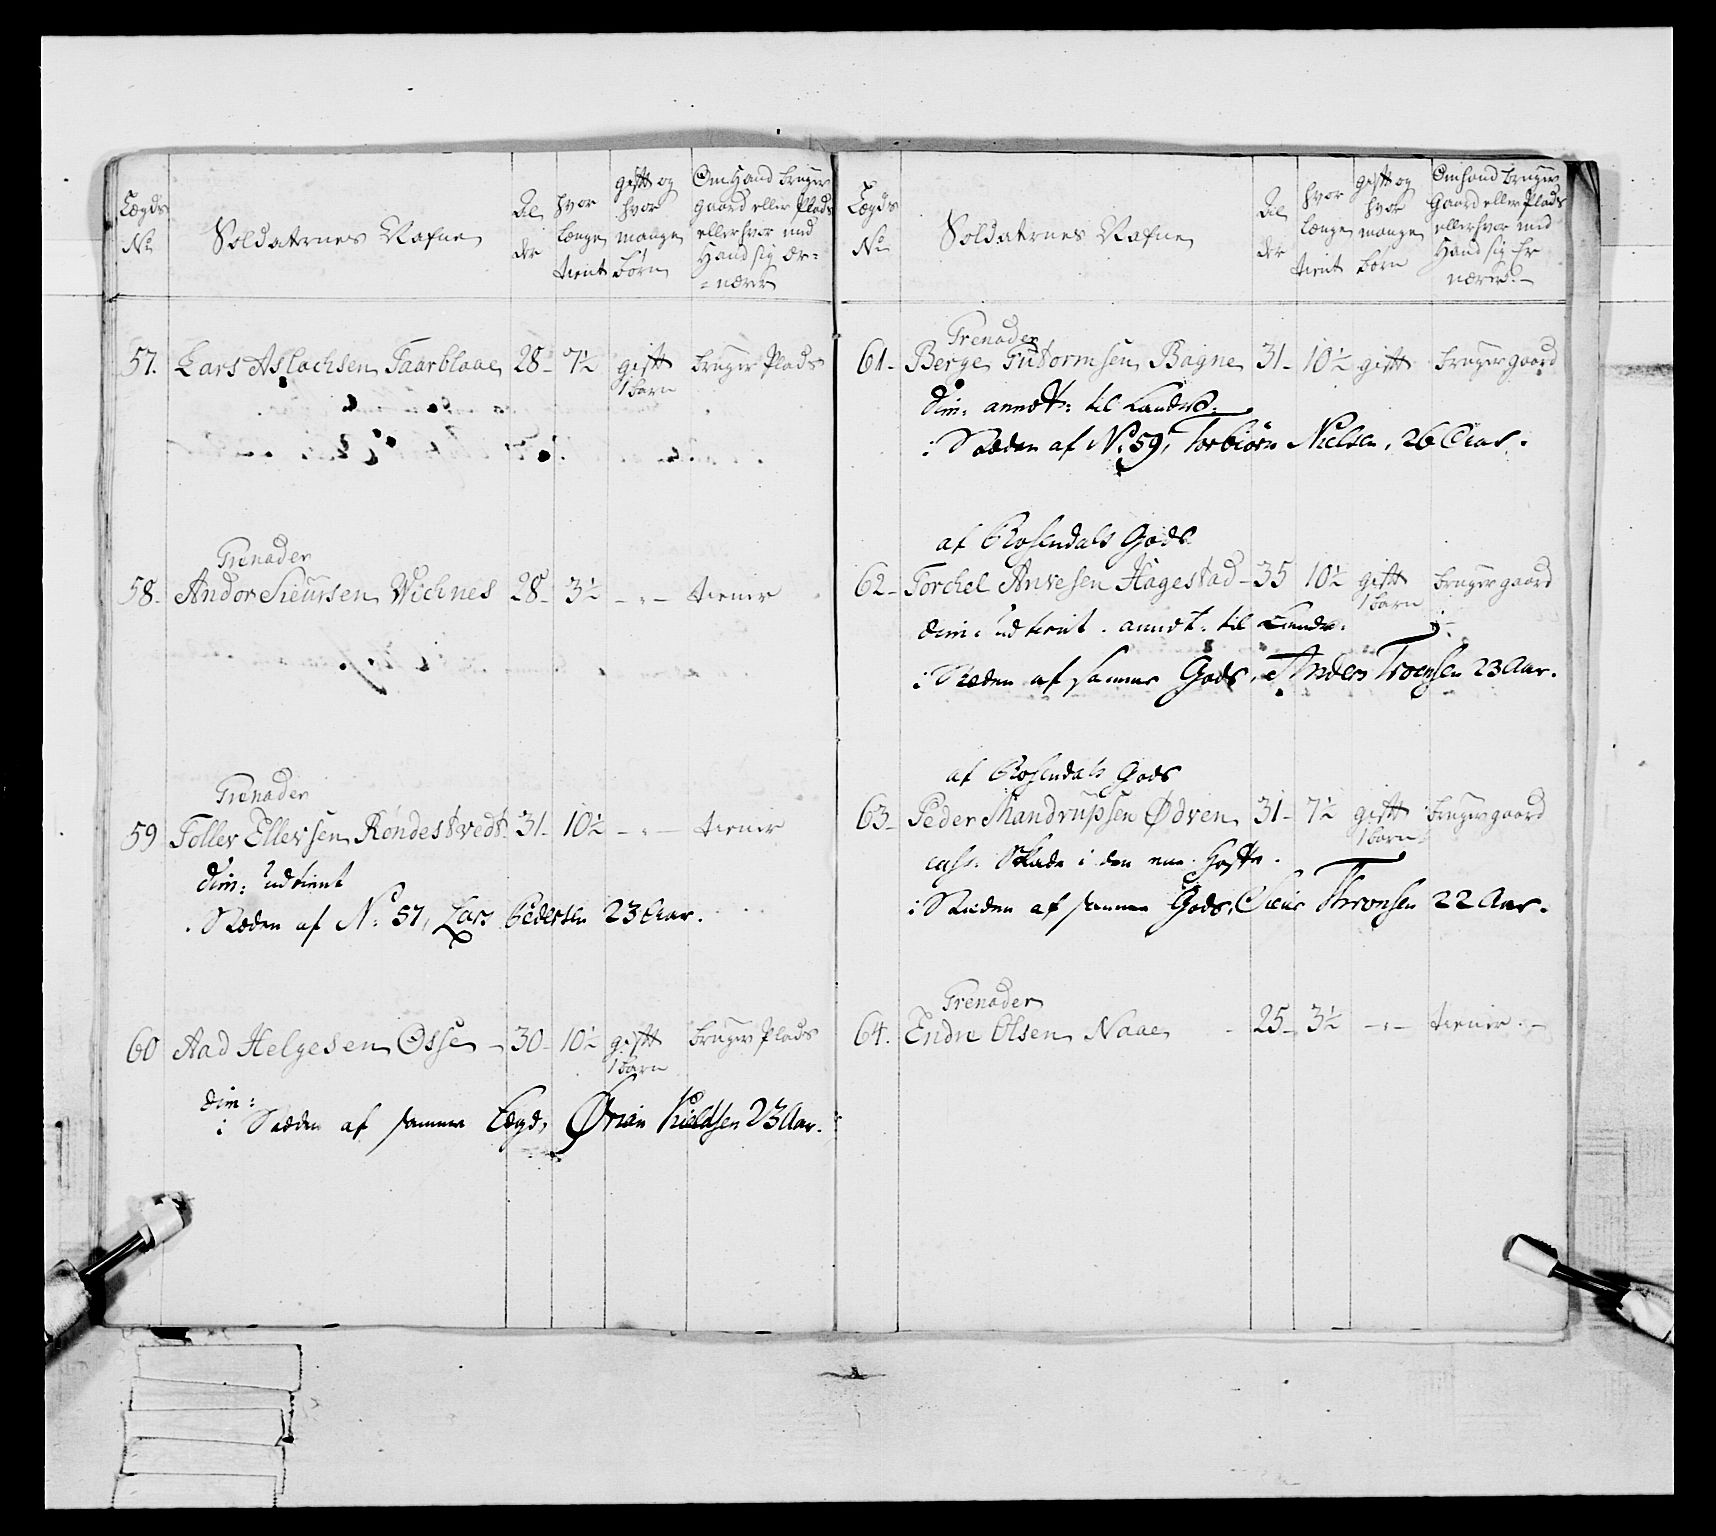 Lægds No
Soldaternes Nafne
Al der
hvor længe tient
gift og hvor mange børn
Om Hand bruger gaard eller Plads eller hvor med Hand sig ernærer
57. Lars Aslachsen Taarblaae 28 - 7½ gift 1 barn bruger Plads
Grenader
58 - Andor Siursen Vichnes 28 - 3½ - " - tiener
Grenader
59 Toller Ellevsen Røndestvedt 31 - 10½ - " - tiener
dim: udtient
i Stæden af No: 57, Lars Pedersen 23 Aar.
60 Aad Helgesen Osse - 30 - 10½ gift 1 barn bruger Plads
dim:
i Stæden af samme Lægd, Ørian Kieldsen 23 Aar.
Lægds No
Soldaternes Nafne
Al der
hvor længe tient
gift og hvor mange børn
Om hand bruger Gaard eller Plads eller hvor med Hand sig Er nærer. -
Grenader
61 - Berge Gutormsen Bagne 31 - 10½ gift bruger gaard
dim: annot: til Landv:
i Stæden af No 59, Torbiørn Nielsen, 26 Aar.
af Rosendals Gods
62 - Torchel Anvesen Hagestad - 35 10½ gift 1 barn bruger gaard
dim: udtient. annot: til Landv:
i Stæden af samme Gods, Anders Troensen 23 Aar.
af Rosendals Gods
63 - Peder Mandrupsen Ødven 31 - 7½ gift 1 barn bruger gaard
cass. Skade i den ene Hofte.
i Stæden af samme Gods, Siur Thronsen 22 Aar.
Grenader
64. Endre Olsen Naae - 25 - 3½ - " - tiener. -